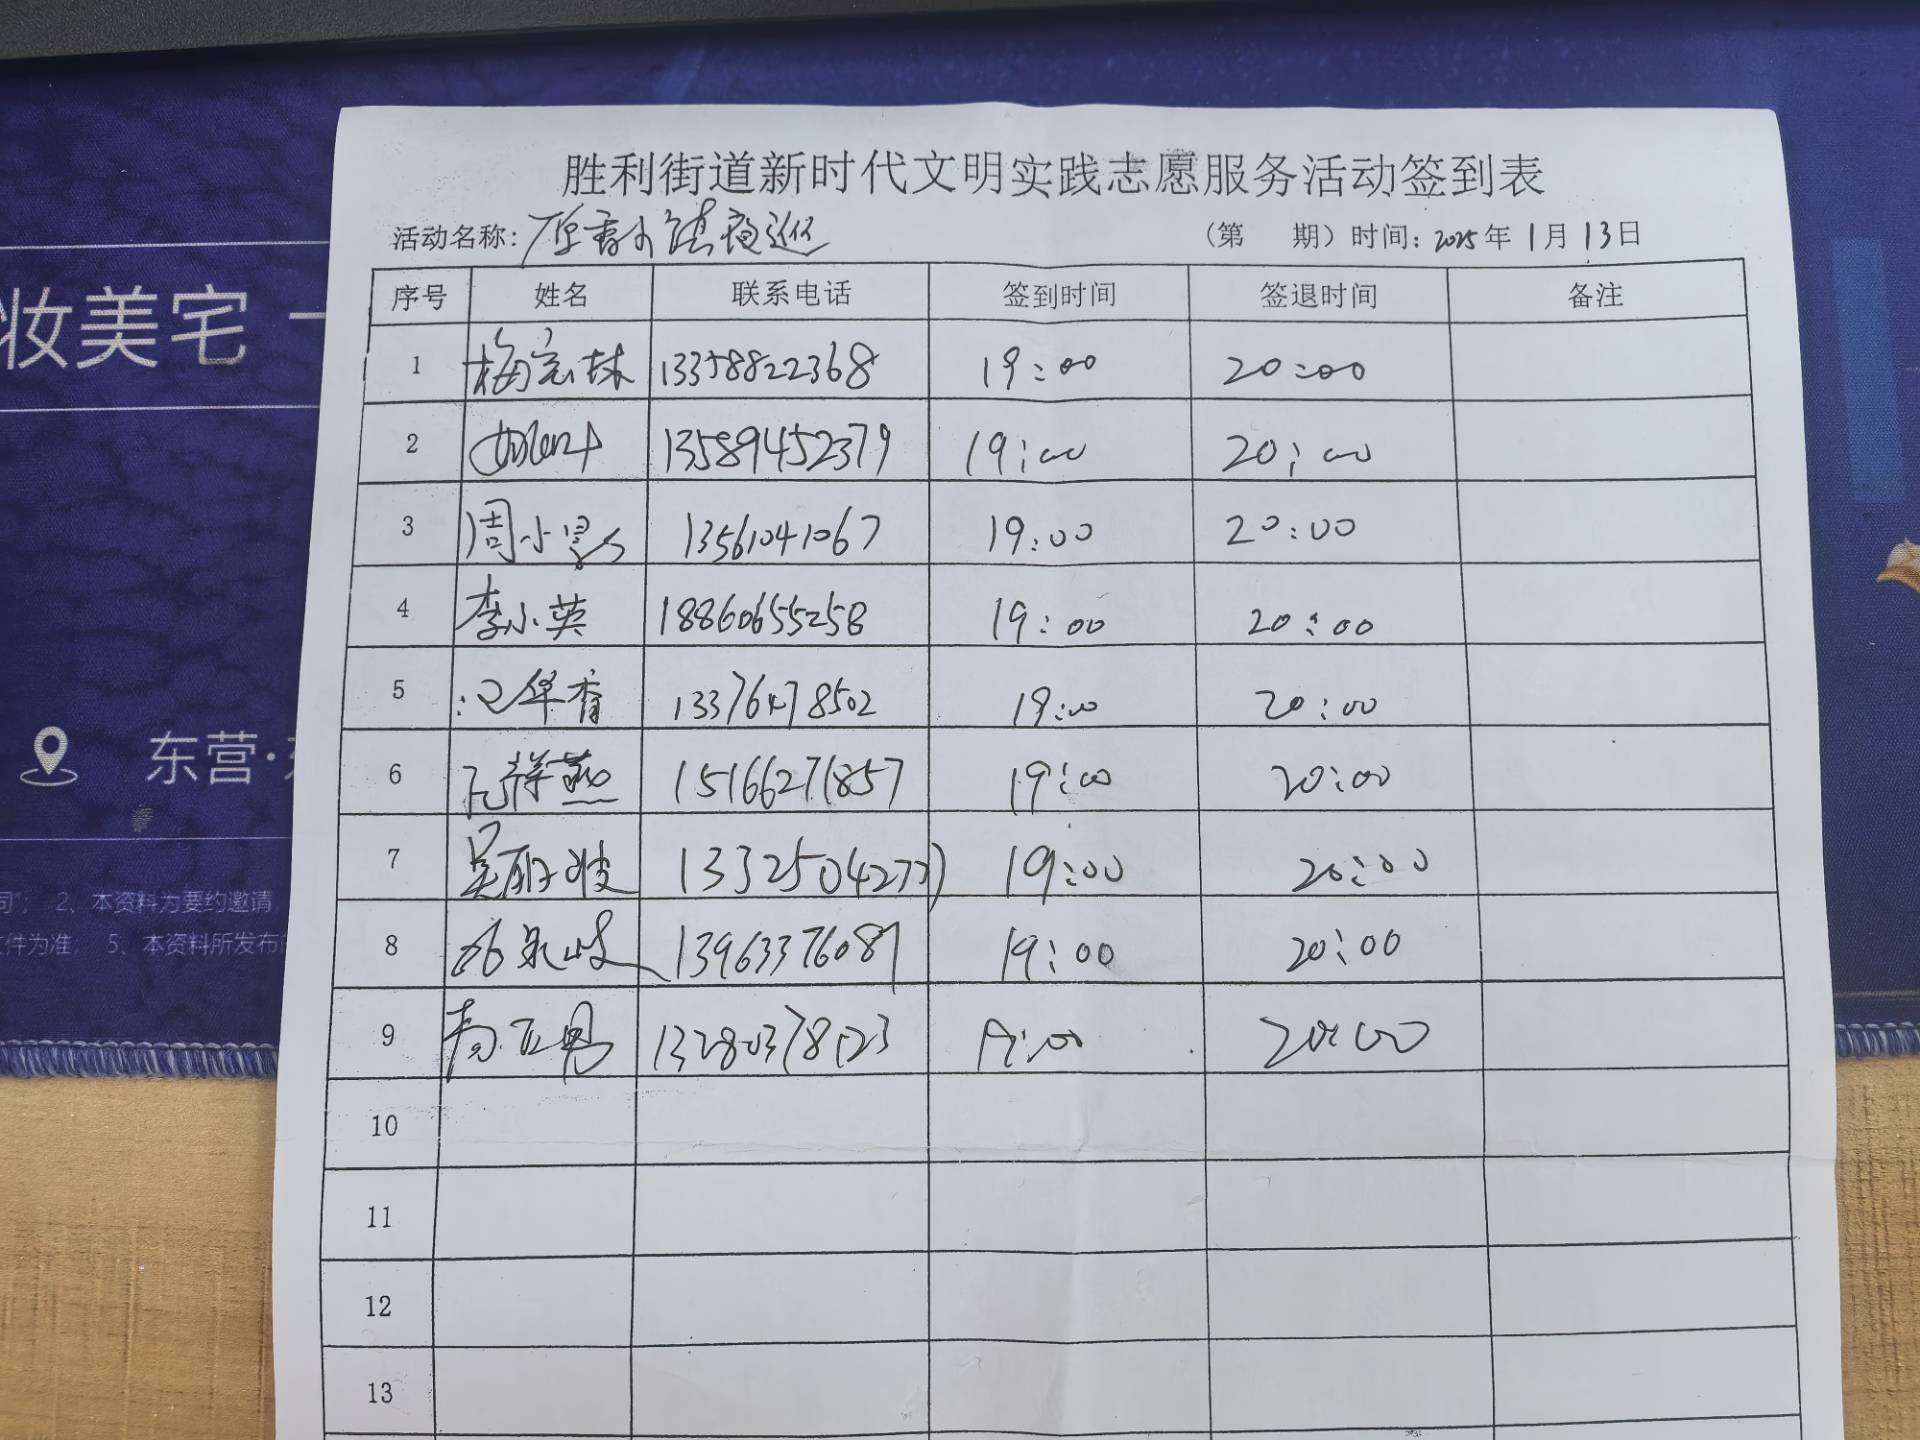 胜利街道新时代文明实践志愿服务活动签到表
活动名称: 夜巡 (第 期) 时间: 2025年1月13日
序号 姓名 联系电话 签到时间 签退时间 备注
1 梅宏林 13358822368 19:00 20:00
2 13589452379 19:00 20:00
3 周小 13561041067 19:00 20:00
4 李小英 18860655258 19:00 20:00
5 华香 13376478502 19:00 20:00
6 祥燕 15166271857 19:00 20:00
7 吴丽波 13325042777 19:00 20:00
8 13963376087 19:00 20:00
9 13280378123 19:00 20:00
10
11
12
13
妆美宅
东营·
2、本资料为要约邀请,
件为准; 5、本资料所发布